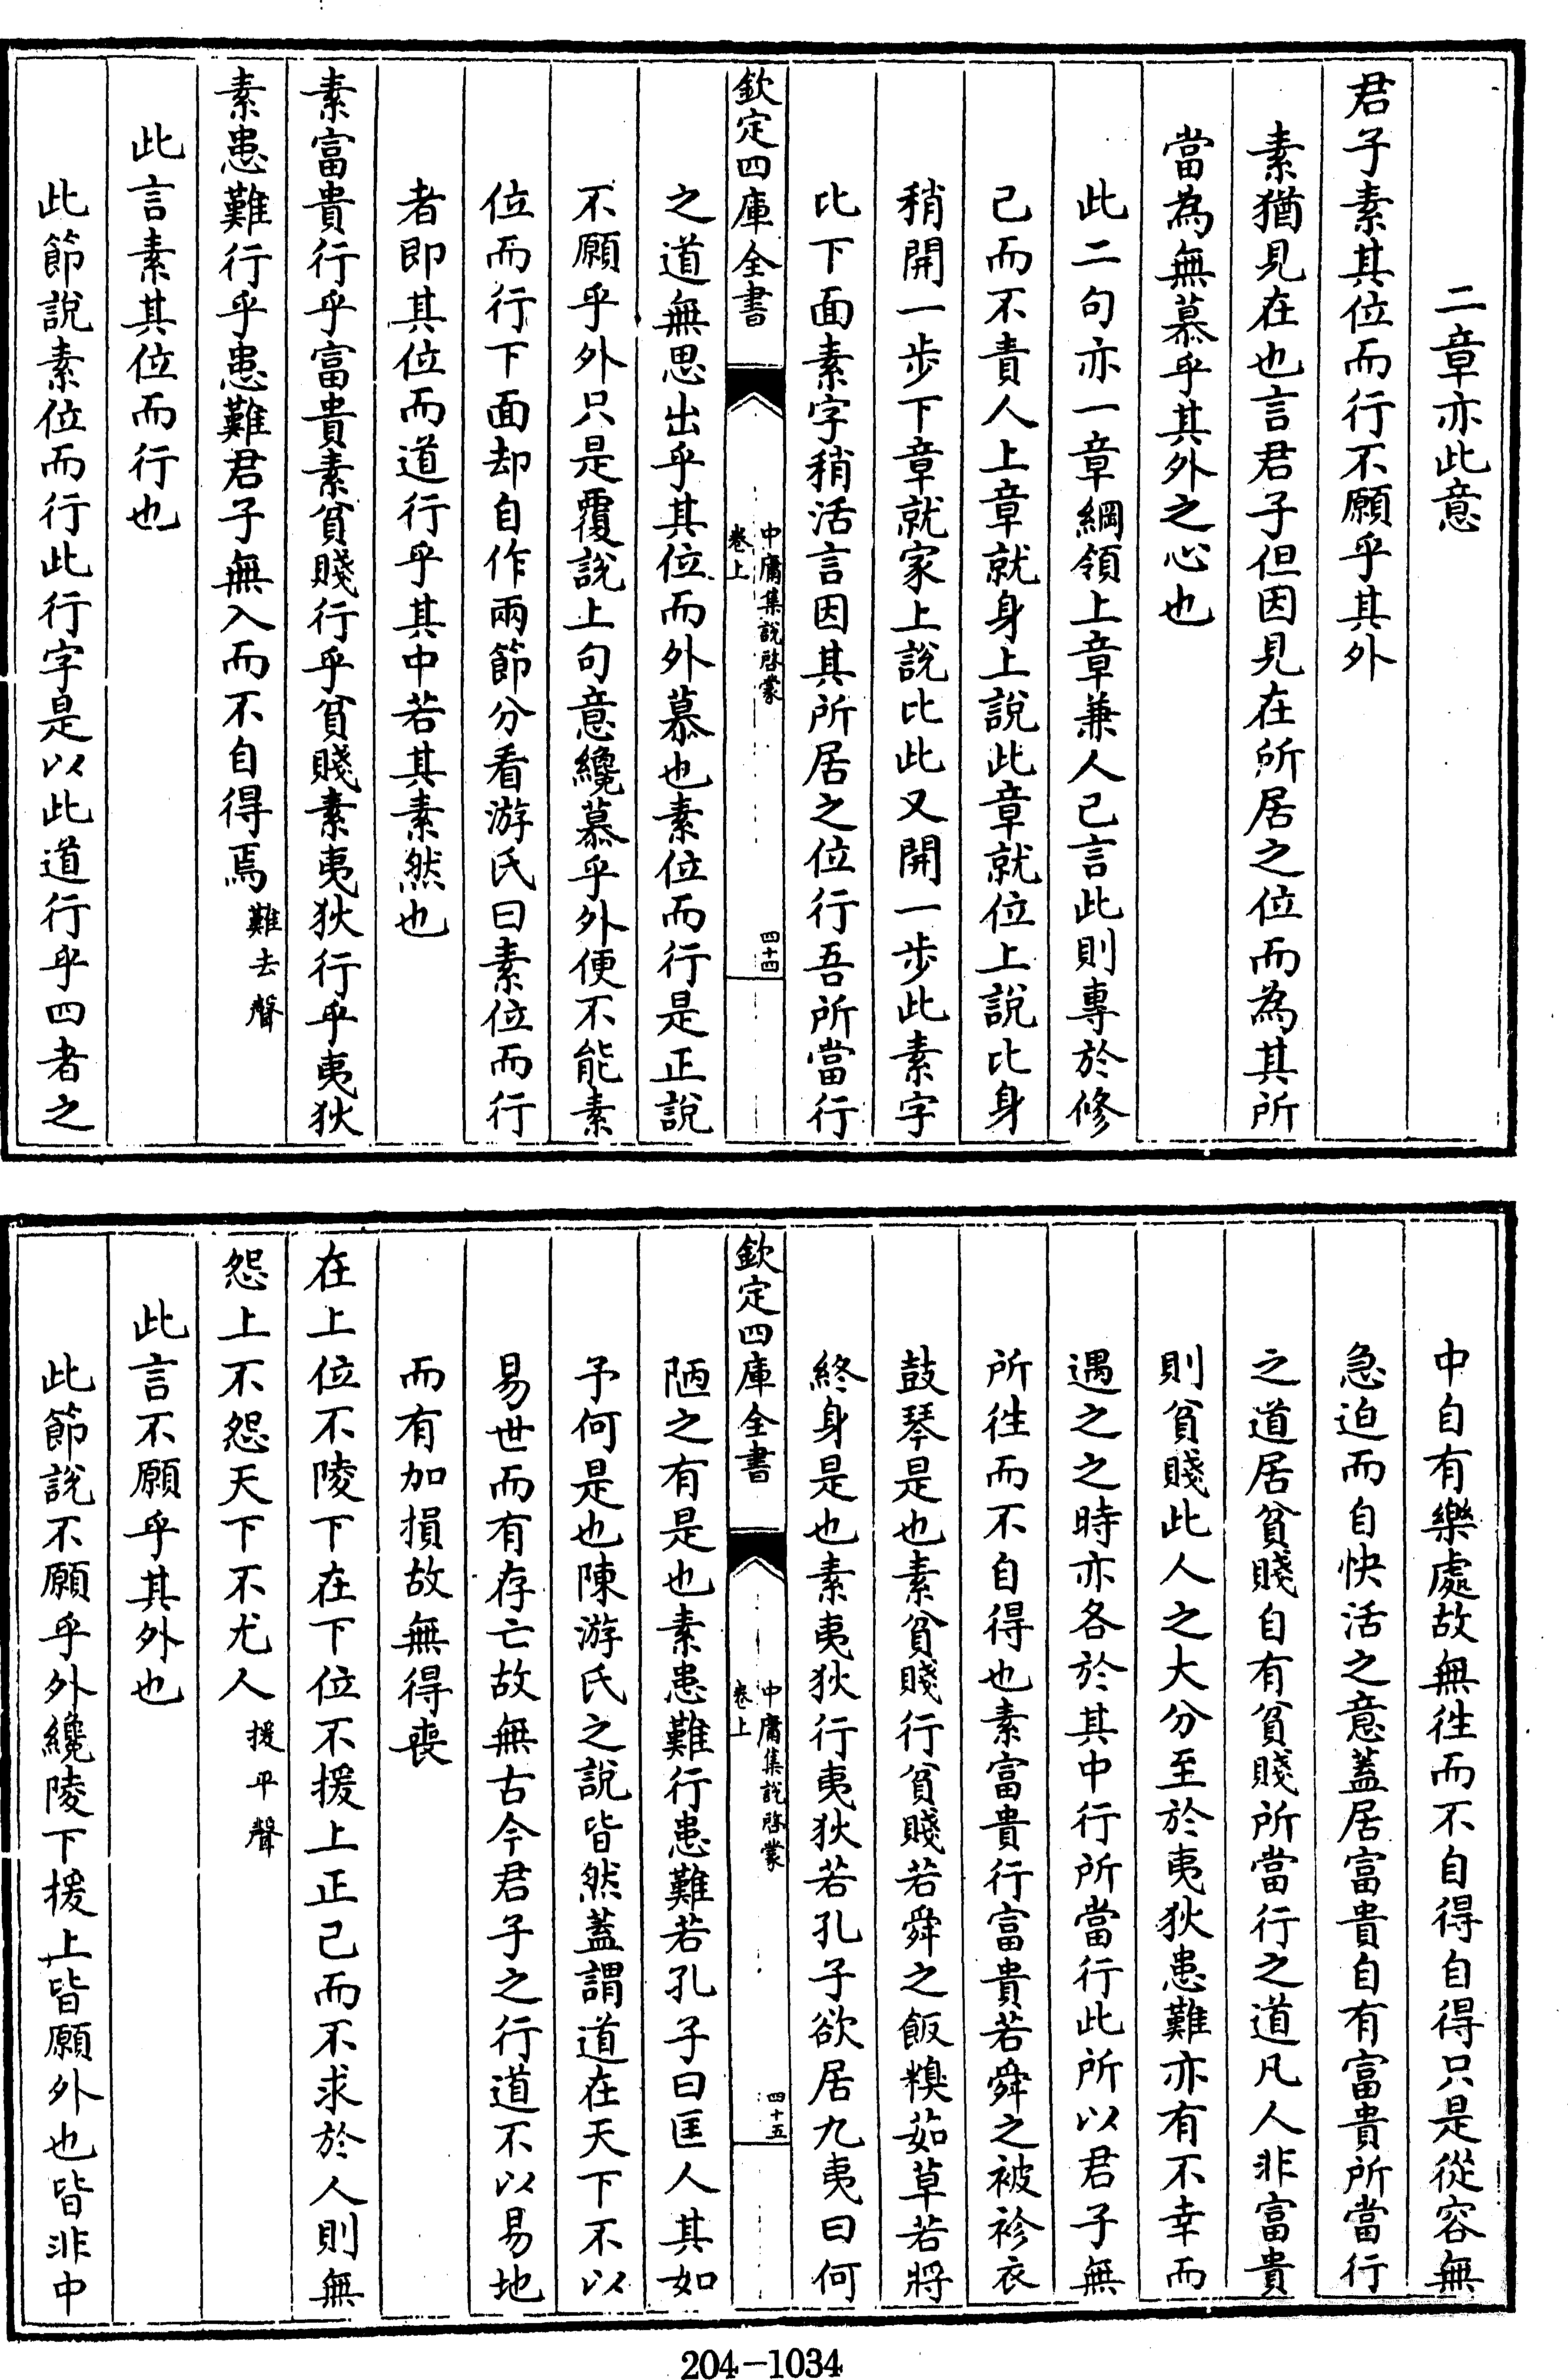 二章亦此意
君子素其位而行不願乎其外
素猶見在也言君子但因見在所居之位而為其所
當為無慕乎其外之心也
此二句亦一章綱領上章兼人己言此則專於修
己而不責人上章就身上說此章就位上說比身
稍開一步下章就家上說比此又開一步此素字
比下面素字稍活言因其所居之位行吾所當行
欽定四庫全書
中庸集說啓蒙
卷上
四十四
之道無思出乎其位而外慕也素位而行是正說
不願乎外只是覆說上句意纔慕乎外便不能素
位而行下面却自作兩節分看游氏曰素位而行
者即其位而道行乎其中若其素然也
素富貴行乎富貴素貧賤行乎貧賤素夷狄行乎夷狄
素患難行乎患難君子無入而不自得焉難去聲
此言素其位而行也
此節說素位而行此行字是以此道行乎四者之
中自有樂處故無徃而不自得自得只是從容無
急迫而自快活之意蓋居富貴自有富貴所當行
之道居貧賤自有貧賤所當行之道凡人非富貴
則貧賤此人之大分至於夷狄患難亦有不幸而
遇之之時亦各於其中行所當行此所以君子無
所徃而不自得也素富貴行富貴若舜之被袗衣
鼓琴是也素貧賤行貧賤若舜之飯糗茹草若將
終身是也素夷狄行夷狄若孔子欲居九夷曰何
欽定四庫全書
中庸集說啓蒙
卷上
四十五
陋之有是也素患難行患難若孔子曰匡人其如
予何是也陳游氏之說皆然蓋謂道在天下不以
易世而有存亡故無古今君子之行道不以易地
而有加損故無得喪
在上位不陵下在下位不援上正己而不求於人則無
怨上不怨天下不尤人援平聲
此言不願乎其外也
此節說不願乎外纔陵下援上皆願外也皆非中
204-1034